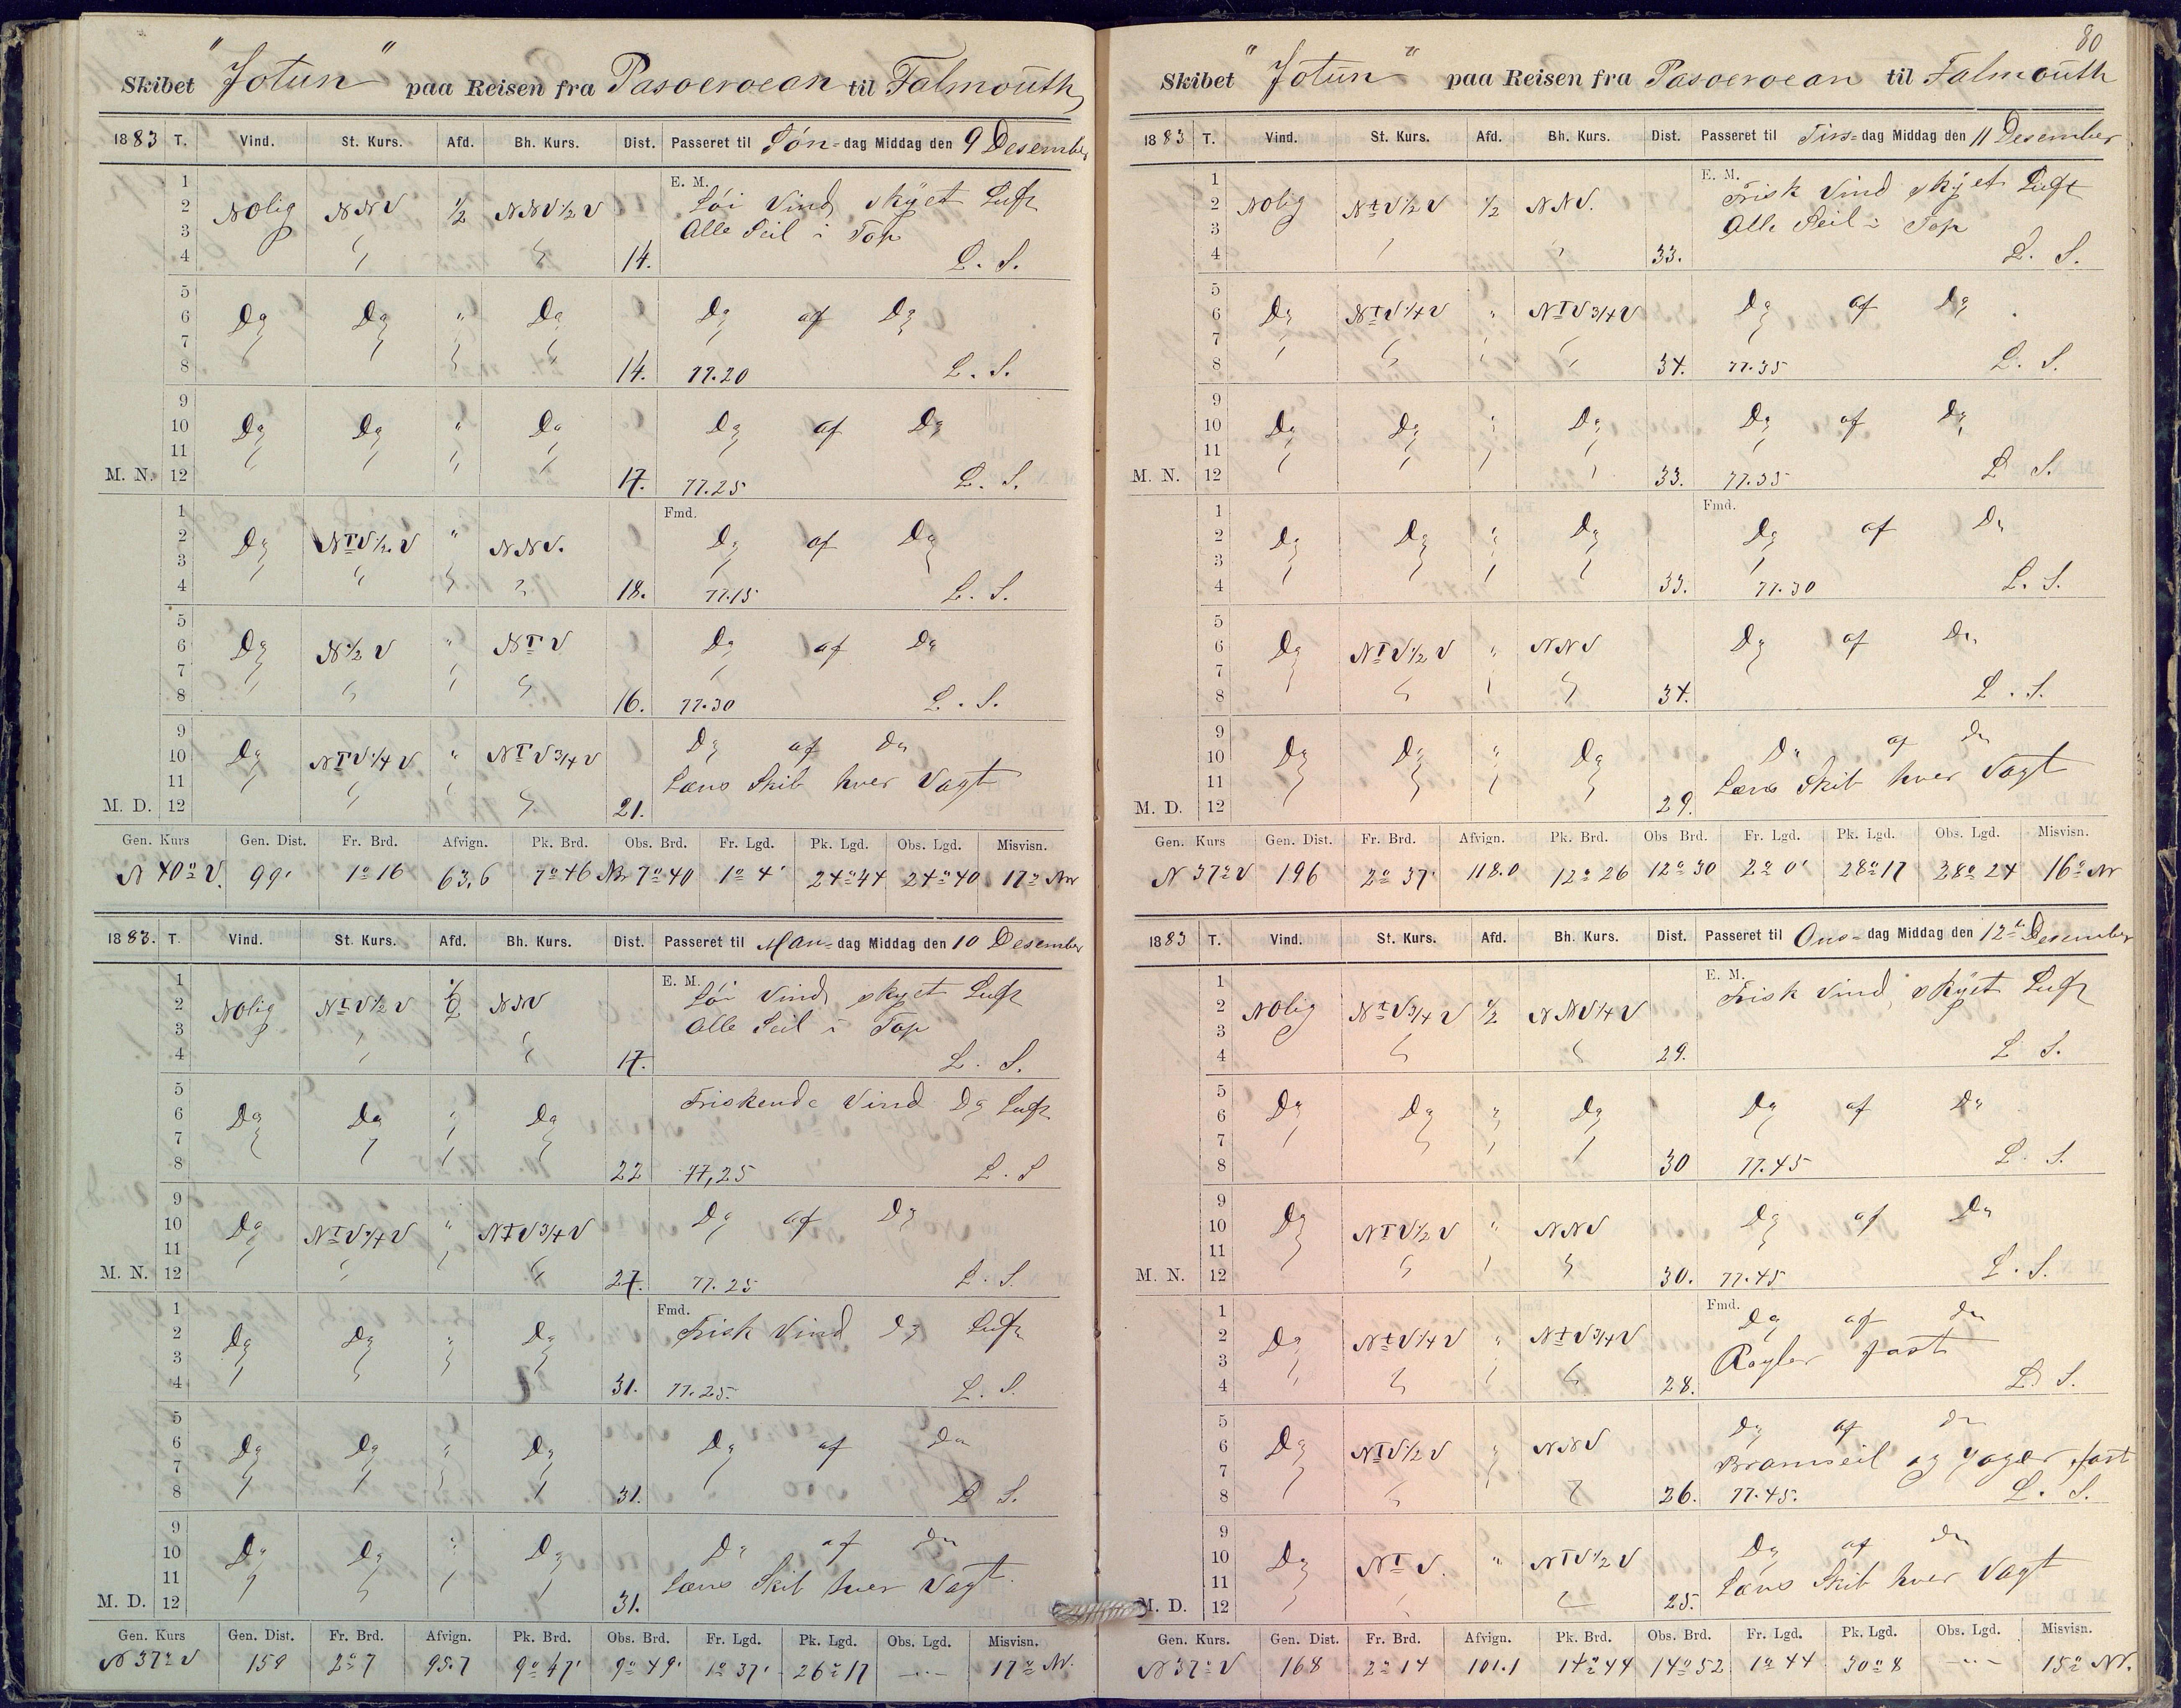 Skibet "Jotun" paa Reisen fra Pasoeroean til Falmouth
1883 T. Vind. St. Kurs. Afd. Bh. Kurs. Dist. Passeret til Søn-dag Middag den 9 Desember
E. M.
1
2 NOlig NNV 1/2 NNV 1/2 V Løi Vind, skyet Luft
3 Alle Seil i Top
4 14. L. S.
5
6 Do Do " Do Do af Do
7
8 14. 77.20 L. S.
9
10 Do Do " Do Do af Do
11
M. N. 12 17. 77.25 L. S.
Fmd.
1
2 Do NTV 1/2 V " NNV. Do af Do
3
4 18. 77.15 L. S.
5
6 Do N 1/2 V " NTV Do af Do
7
8 16. 77.30 L. S.
9
10 Do NTV 1/4 V " NTV 3/4 V Do af Do
11 Læns Skib hver Vagt
M. D. 12 21.
Gen. Kurs Gen. Dist. Fr. Brd. Afvign. Pk. Brd. Obs. Brd. Fr. Lgd. Pk. Lgd. Obs. Lgd. Misvisn.
N 40° V. 99' 1° 16 63,6 7° 46 Nr 7° 40 1° 4' 24° 44 24° 40 17° Nv
1883. T. Vind. St. Kurs. Afd. Bh. Kurs. Dist. Passeret til Man-dag Middag den 10 Desember
E. M.
1
2 NOlig NtV 1/2 V 1/2 NNV Løi Vind, skyet Luft
3 Alle Seil i Top
4 17. L. S.
5
6 Do Do " Do Friskende Vind Do Luft
7
8 22 77,25 L. S
9
10 Do NTV 3/4 V " NTV 3/4 V Do af Do
11
M. N. 12 27. 77.25 L. S.
Fmd.
1
2 Do Do " Do Frisk Vind Do Luft
3
4 31. 77.25. L. S.
5
6 Do Do " Do Do af Do
7
8 31. L S.
9
10 Do Do " Do Do af Do
11 Læns Skib hver Vagt.
M. D. 12 31.
Gen. Kurs Gen. Dist. Fr. Brd. Afvign. Pk. Brd. Obs. Brd. Fr. Lgd. Pk. Lgd. Obs. Lgd. Misvisn.
N 37° V 159 2° 7 95.7 9° 47' 9° 49' 1° 37' 26° 17 -"- 17° Nv.
80
Skibet "Jotun" paa Reisen fra Pasoeroean til Falmouth
1883 T. Vind. St. Kurs. Afd. Bh. Kurs. Dist. Passeret til Tirs-dag Middag den 11 Desember
E. M.
1
2 NOlig NtV 1/2 V 1/2 NNV. Frisk Vind skyet Luft
3 Alle Seil i Top
4 33. L. S.
5
6 Do NTV 1/4 V " NTV 3/4 V Do af Do
7
8 34. 77.35 L. S.
9
10 Do Do " Do Do af Do
11
M. N. 12 33. 77.35 L S.
Fmd.
1
2 Do Do " Do Do af Do
3
4 33. 77.30 L. S.
5
6 Do NTV 1/2 V " NNV Do af Do
7
8 34. L. S.
9
10 Do Do " Do Do af Do
11 Læns Skib hver Vagt
M. D. 12 29.
Gen. Kurs Gen. Dist. Fr. Brd. Afvign. Pk. Brd. Obs Brd. Fr. Lgd. Pk. Lgd. Obs. Lgd. Misvisn.
N 37° V 196 2° 37' 118.0 12° 26 12° 30 2° 0' 28° 17 28° 24 16° Nv
1883 T. Vind. St. Kurs. Afd. Bh. Kurs. Dist. Passeret til Ons-dag Middag den 12te Desember
E. M.
1
2 NOlig NtV 3/4 V 1/2 NNV 1/4 V Frisk Vind, skyet Luft
3
4 29. L S.
5
6 Do Do " Do Do af Do
7
8 30 77.45 L. S.
9
10 Do NTV 1/2 V " NNV Do af Do
11
M. N. 12 30. 77.45 L. S.
Fmd.
1
2 Do NtV 1/4 V " NtV 3/4 V Do af Do
3 Røyler fast
4 28. L. S.
5
6 Do NTV 1/2 V " NNV Do af Do
7 Bramseil og Jager fast
8 26. 77.45. L. S.
9
10 Do NTV. " NTV 1/2 V Do af Do
11 Læns Skib hver Vagt
M. D. 12 25.
Gen. Kurs. Gen. Dist. Fr. Brd. Afvign. Pk. Brd. Obs. Brd. Fr. Lgd. Pk. Lgd. Obs. Lgd. Misvisn.
N 37° V 168 2° 14 101.1 14° 44 14° 52 1° 44 30° 8 -"- 15° Nv.